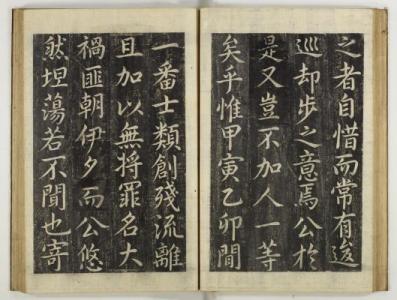 之者自惜而常有逡
巡却步之意焉公於
是又豈不加人一等
矣乎惟甲寅乙卯間
一番士類創殘流離
且加以無將罪名大
禍匪朝伊夕而公悠
然坦蕩若不聞也寄